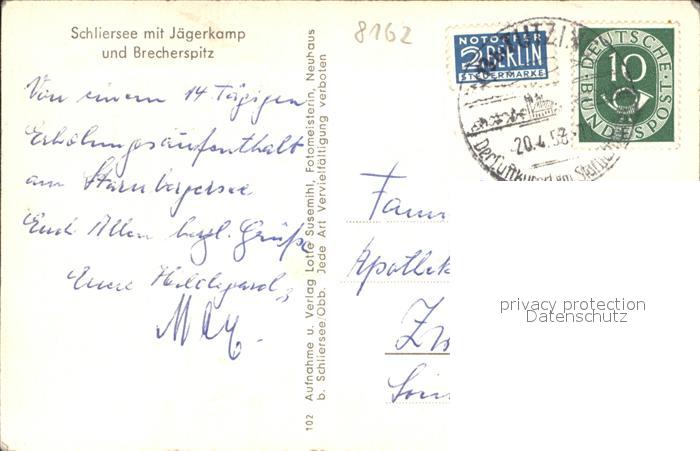 Schliersee mit Jägerkamp
und Brecherspitz
8162
NOTOPFER
2 BERLIN
STEUERMARKE
TUTZING
20.4.53
Der Luftkurort am
DEUTSCHE
10
BUNDESPOST
Von einem 14 Tägigen
Erholungsaufenthalt
am Starnbergersee
Euch Allen herzl. Grüße
Eure Hildegard
Aufnahme u. Verlag Lotte Susemihl, Fotomeisterin, Neuhaus
b. Schliersee/Obb. Jede Art Vervielfältigung verboten
102
Fam
Apothek
privacy protection
Datenschutz